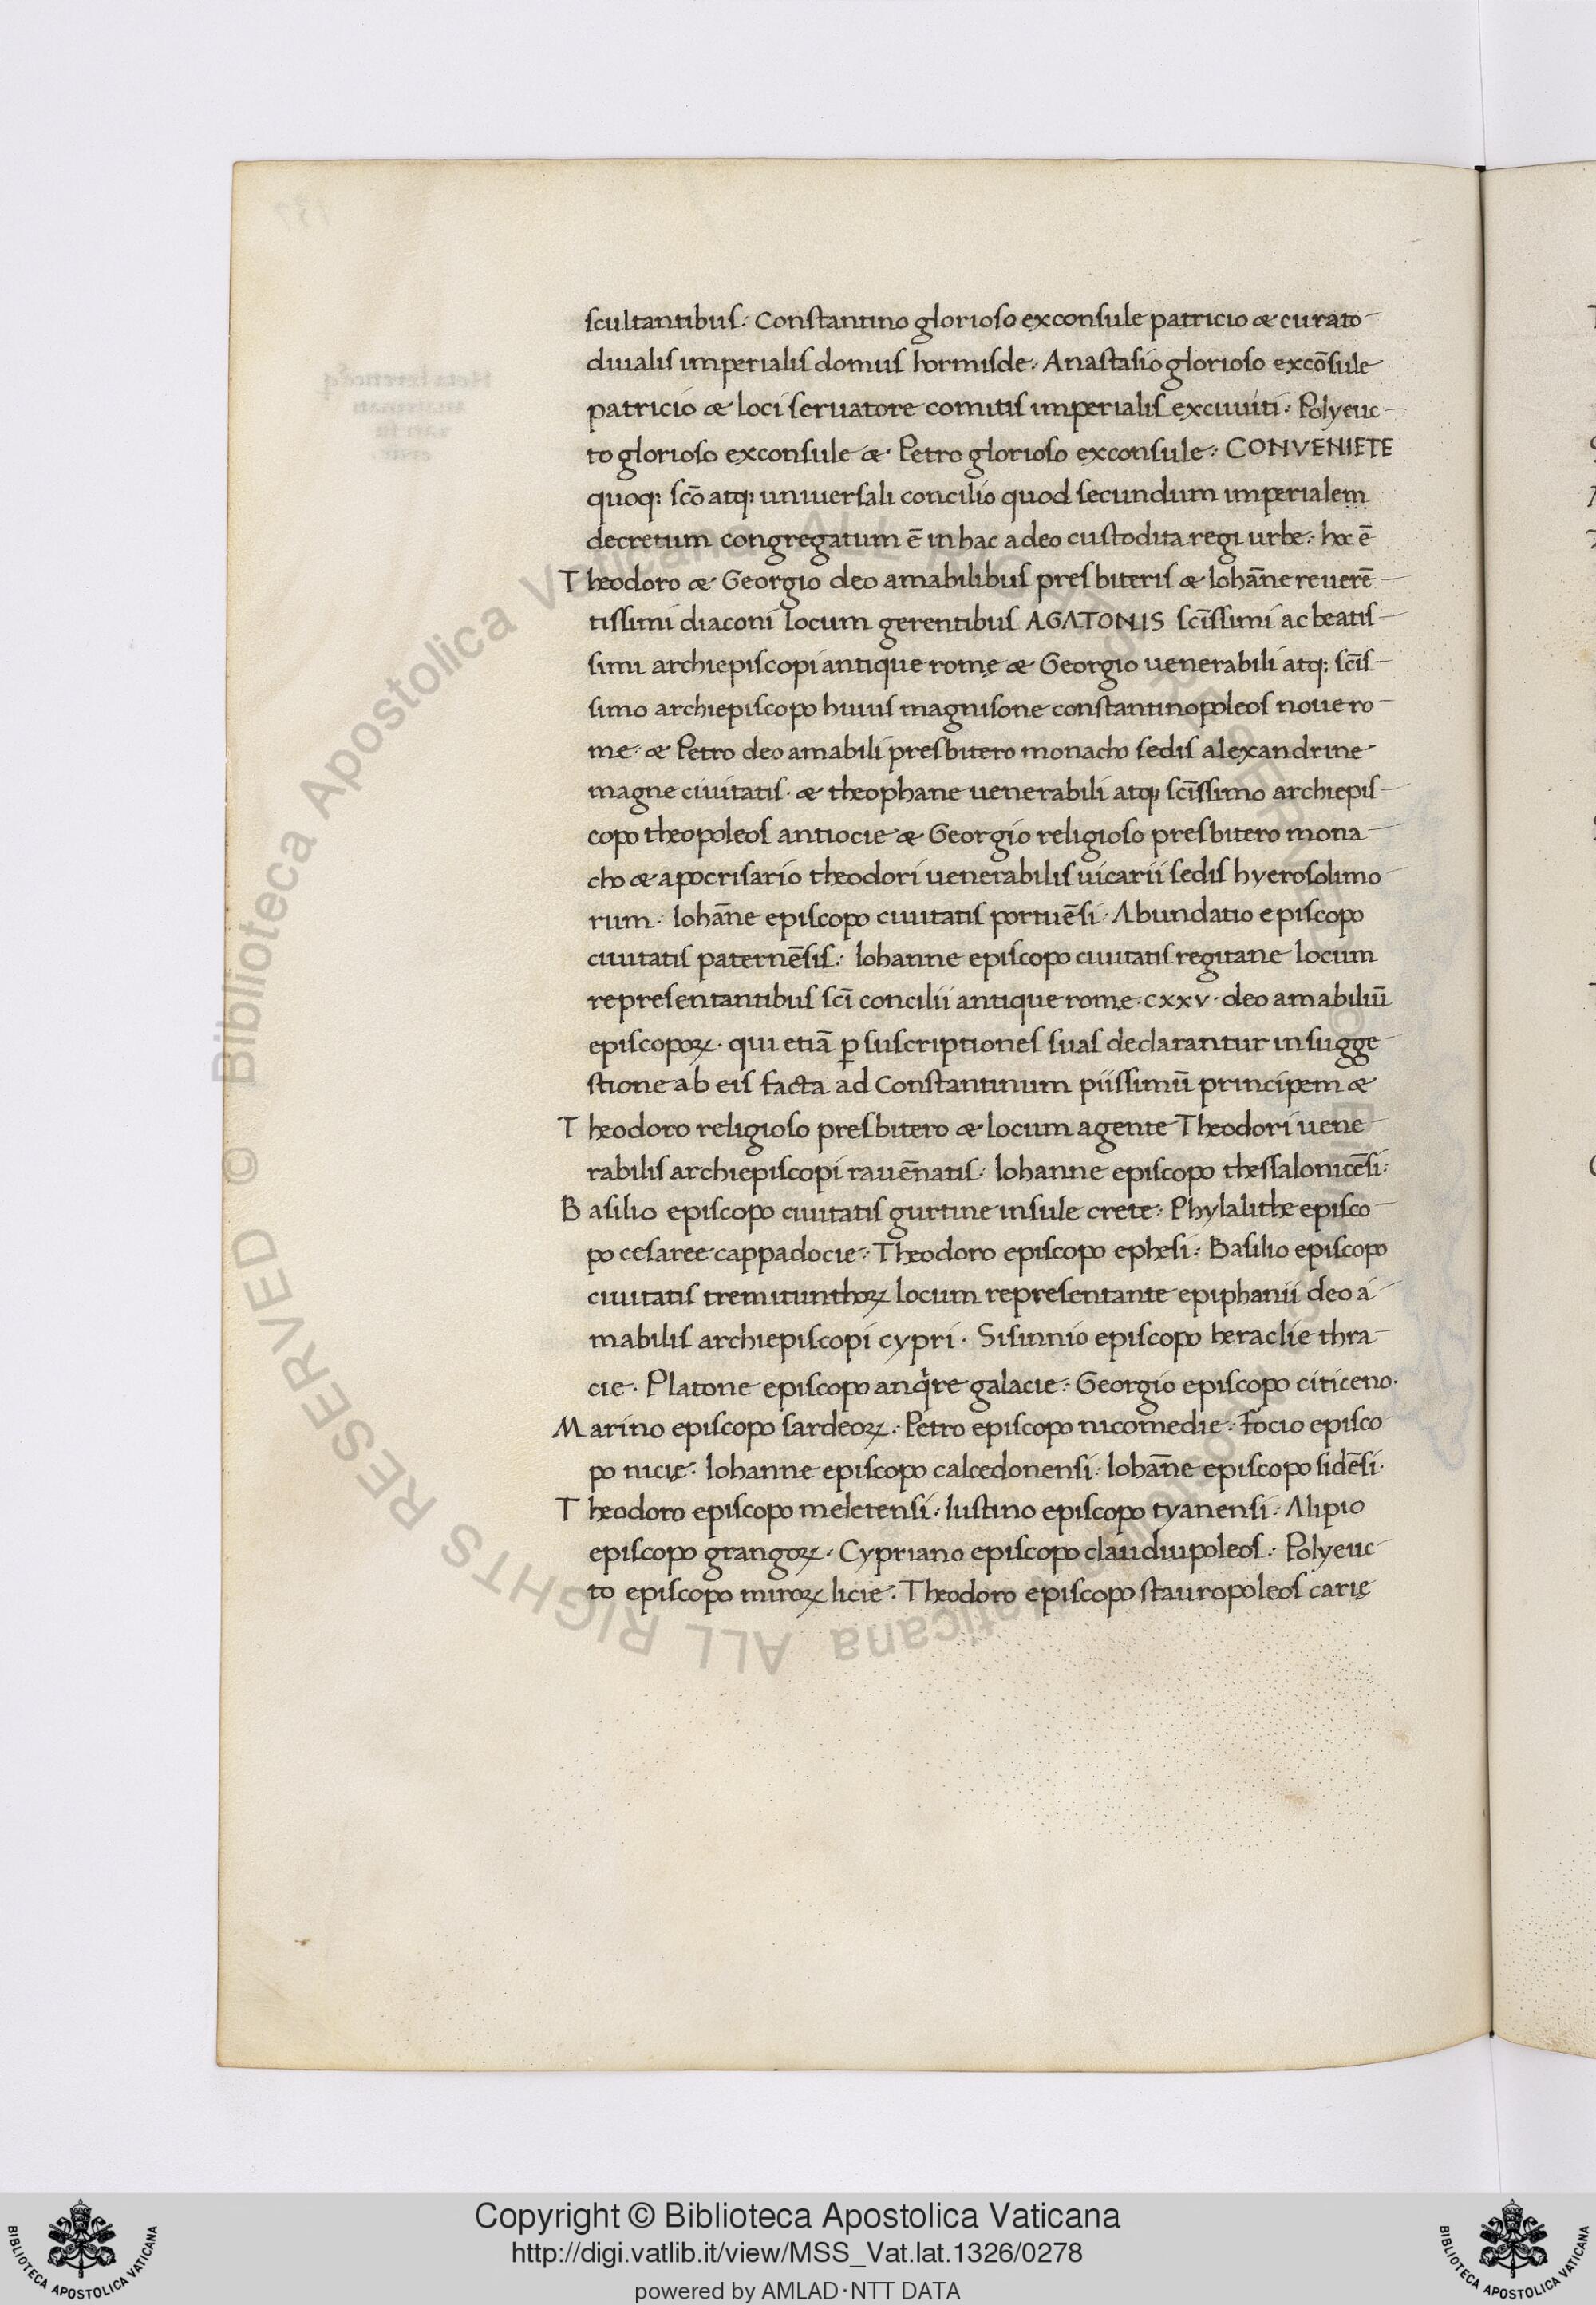 scultantibus: Constantino glorioso exconsule patricio & curato
diuialis imperialis domus hormisde: Anastasio glorioso excōsule
patricio & loci seruatore comitis imperialis excuuiti: Polyeuc
to glorioso exconsule & Petro glorioso exconsule: CONVENIETE
quoq; scō atq; uniuersali concilio quod secundum imperialem
decretum congregatum ē in hac a deo custodita regi urbe: hoc ē
Theodoro & Georgio deo amabilibus presbiteris & Iohāne reuerē
tissimi diaconi locum gerentibus AGATONIS scīssimi ac beatis
simi archiepiscopi antique romę & Georgio uenerabili atq; scīs
simo archiepiscopo huius magnisone constantinopoleos noue ro
me: & Petro deo amabili presbitero monacho sedis alexandrine
magne ciuitatis · & theophane uenerabili atq; scīssimo archiepis
copo theopoleos antiocie & Georgio religioso presbitero mona
cho & apocrisario theodori uenerabilis uicarii sedis hyerosolimo
rum: Iohāne episcopo ciuitatis portuēsi · Abundatio episcopo
ciuitatis paternēsis: Iohanne episcopo ciuitatis regitane locum
representantibus scī concilii antique rome · cxxv · deo amabiliū
episcopoꝝ · qui etiā ꝑ suscriptiones suas declarantur in sugge
stione ab eis facta ad Constantinum piissimū principem &
Theodoro religioso presbitero & locum agente Theodori uene
rabilis archiepiscopi rauēnatis: Iohanne episcopo thessalonicēsi:
Basilio episcopo ciuitatis gurtine insule crete: Phylalithe episco
po cesaree cappadocie: Theodoro episcopo ephesi: Basilio episcopo
ciuitatis tremitunthoꝝ locum representante epiphanii deo a
mabilis archiepiscopi cypri · Sisinnio episcopo heraclie thra
cie · Platone episcopo anqͥre galacie: Georgio episcopo citiceno ·
Marino episcopo sardeoꝝ: Petro episcopo nicomedie: Focio episco
po nicię: Iohanne episcopo calcedonensi: Iohāne episcopo sidēsi ·
Theodoro episcopo meletensi: Iustino episcopo tyanensi: Alipio
episcopo grangoꝝ · Cypriano episcopo claudiupoleos: Polyeuc
to episcopo miroꝝ licie: Theodoro episcopo stauropoleos carię
© Biblioteca Apostolica Vaticana ALL RIGHTS RESERVED
Copyright © Biblioteca Apostolica Vaticana
http://digi.vatlib.it/view/MSS_Vat.lat.1326/0278
powered by AMLAD·NTT DATA
BIBLIOTECA APOSTOLICA VATICANA
BIBLIOTECA APOSTOLICA VATICANA